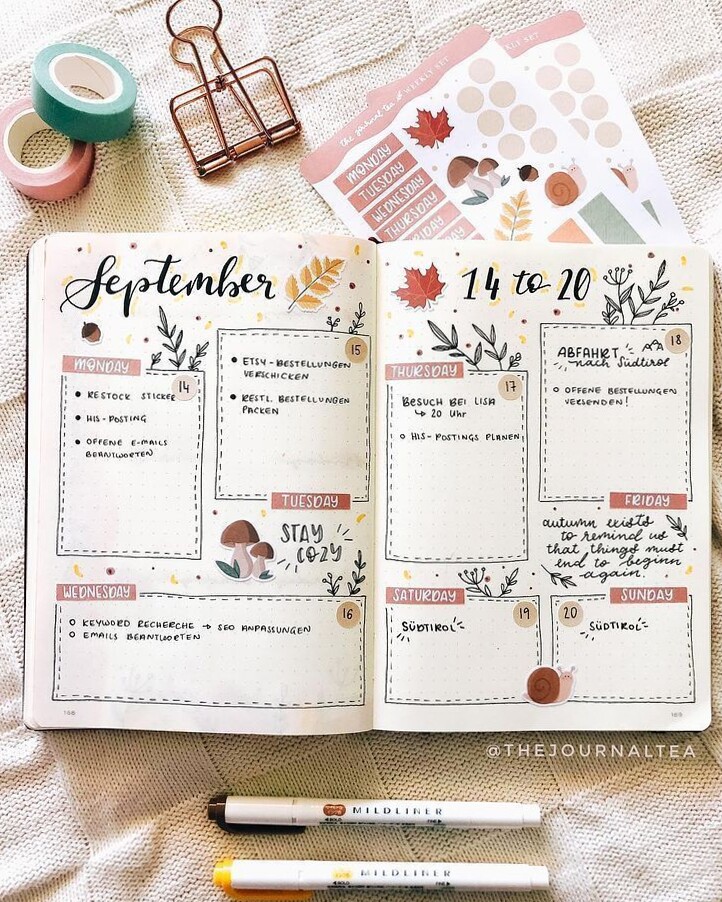 the journal tea WEEKLY SET
KLY SET
MONDAY
TUESDAY
WEDNESDAY
THURSDAY
FRIDAY
September
14 to 20
MONDAY
14
• RESTOCK STICKER
• HIS-POSTING
• OFFENE E-MAILS
BEANTWORTEN
15
• ETSY-BESTELLUNGEN
VERSCHICKEN
• RESTL. BESTELLUNGEN
PACKEN
TUESDAY
STAY
COZY
WEDNESDAY
16
o KEYWORD RECHERCHE → SEO ANPASSUNGEN
o EMAILS BEANTWORTEN
168
THURSDAY
17
BESUCH BEI LISA
↳ 20 Uhr
o HIS-POSTINGS PLANEN
18
ABFAHRT
nach Südtirol
o OFFENE BESTELLUNGEN
VERSENDEN!
FRIDAY
autumn exists
to remind us
that things must
end to beginn
again.
SATURDAY
19
SÜDTIROL
SUNDAY
20
SÜDTIROL
169
@THEJOURNALTEA
MILDLINER
BOLD FINE
MILDLINER
BOLD FINE